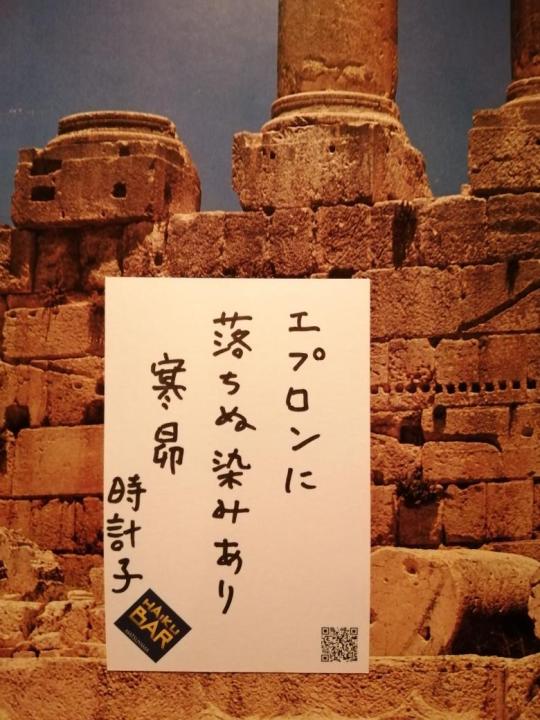 エプロンに
落ちぬ染みあり
寒昴
時計子
HAIKU
BAR